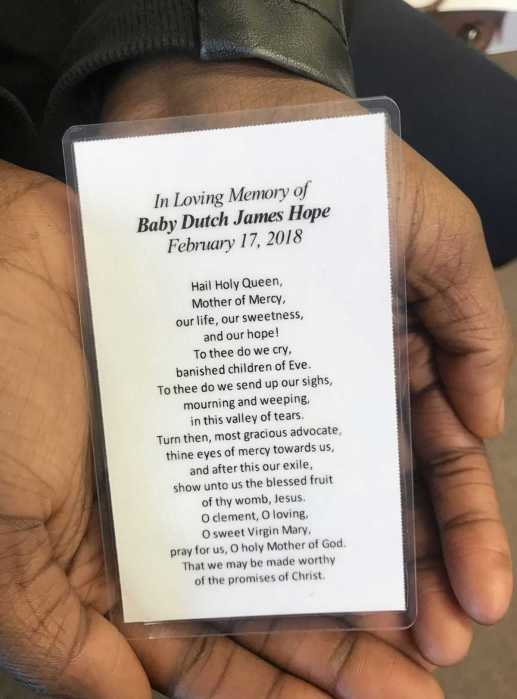 In Loving Memory of
Baby Dutch James Hope
February 17, 2018
Hail Holy Queen,
Mother of Mercy,
our life, our sweetness,
and our hope!
To thee do we cry,
banished children of Eve.
To thee do we send up our sighs,
mourning and weeping,
in this valley of tears.
Turn then, most gracious advocate,
thine eyes of mercy towards us,
and after this our exile,
show unto us the blessed fruit
of thy womb, Jesus.
O clement, O loving,
O sweet Virgin Mary,
pray for us, O holy Mother of God.
That we may be made worthy
of the promises of Christ.